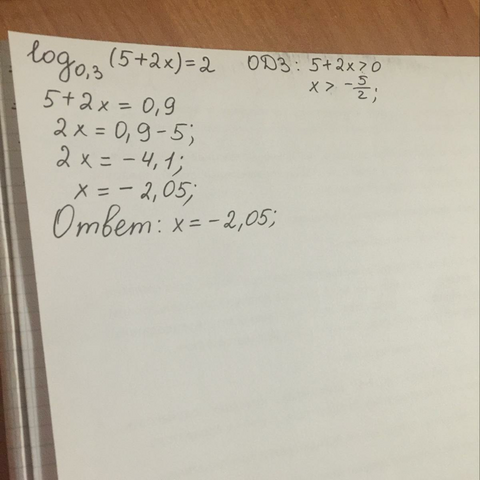 log₀,₃ (5+2x) = 2 ОДЗ: 5+2x>0
x > -5/2;
5+2x = 0,9
2x = 0,9-5;
2x = -4,1;
x = -2,05;
Ответ: x = -2,05;